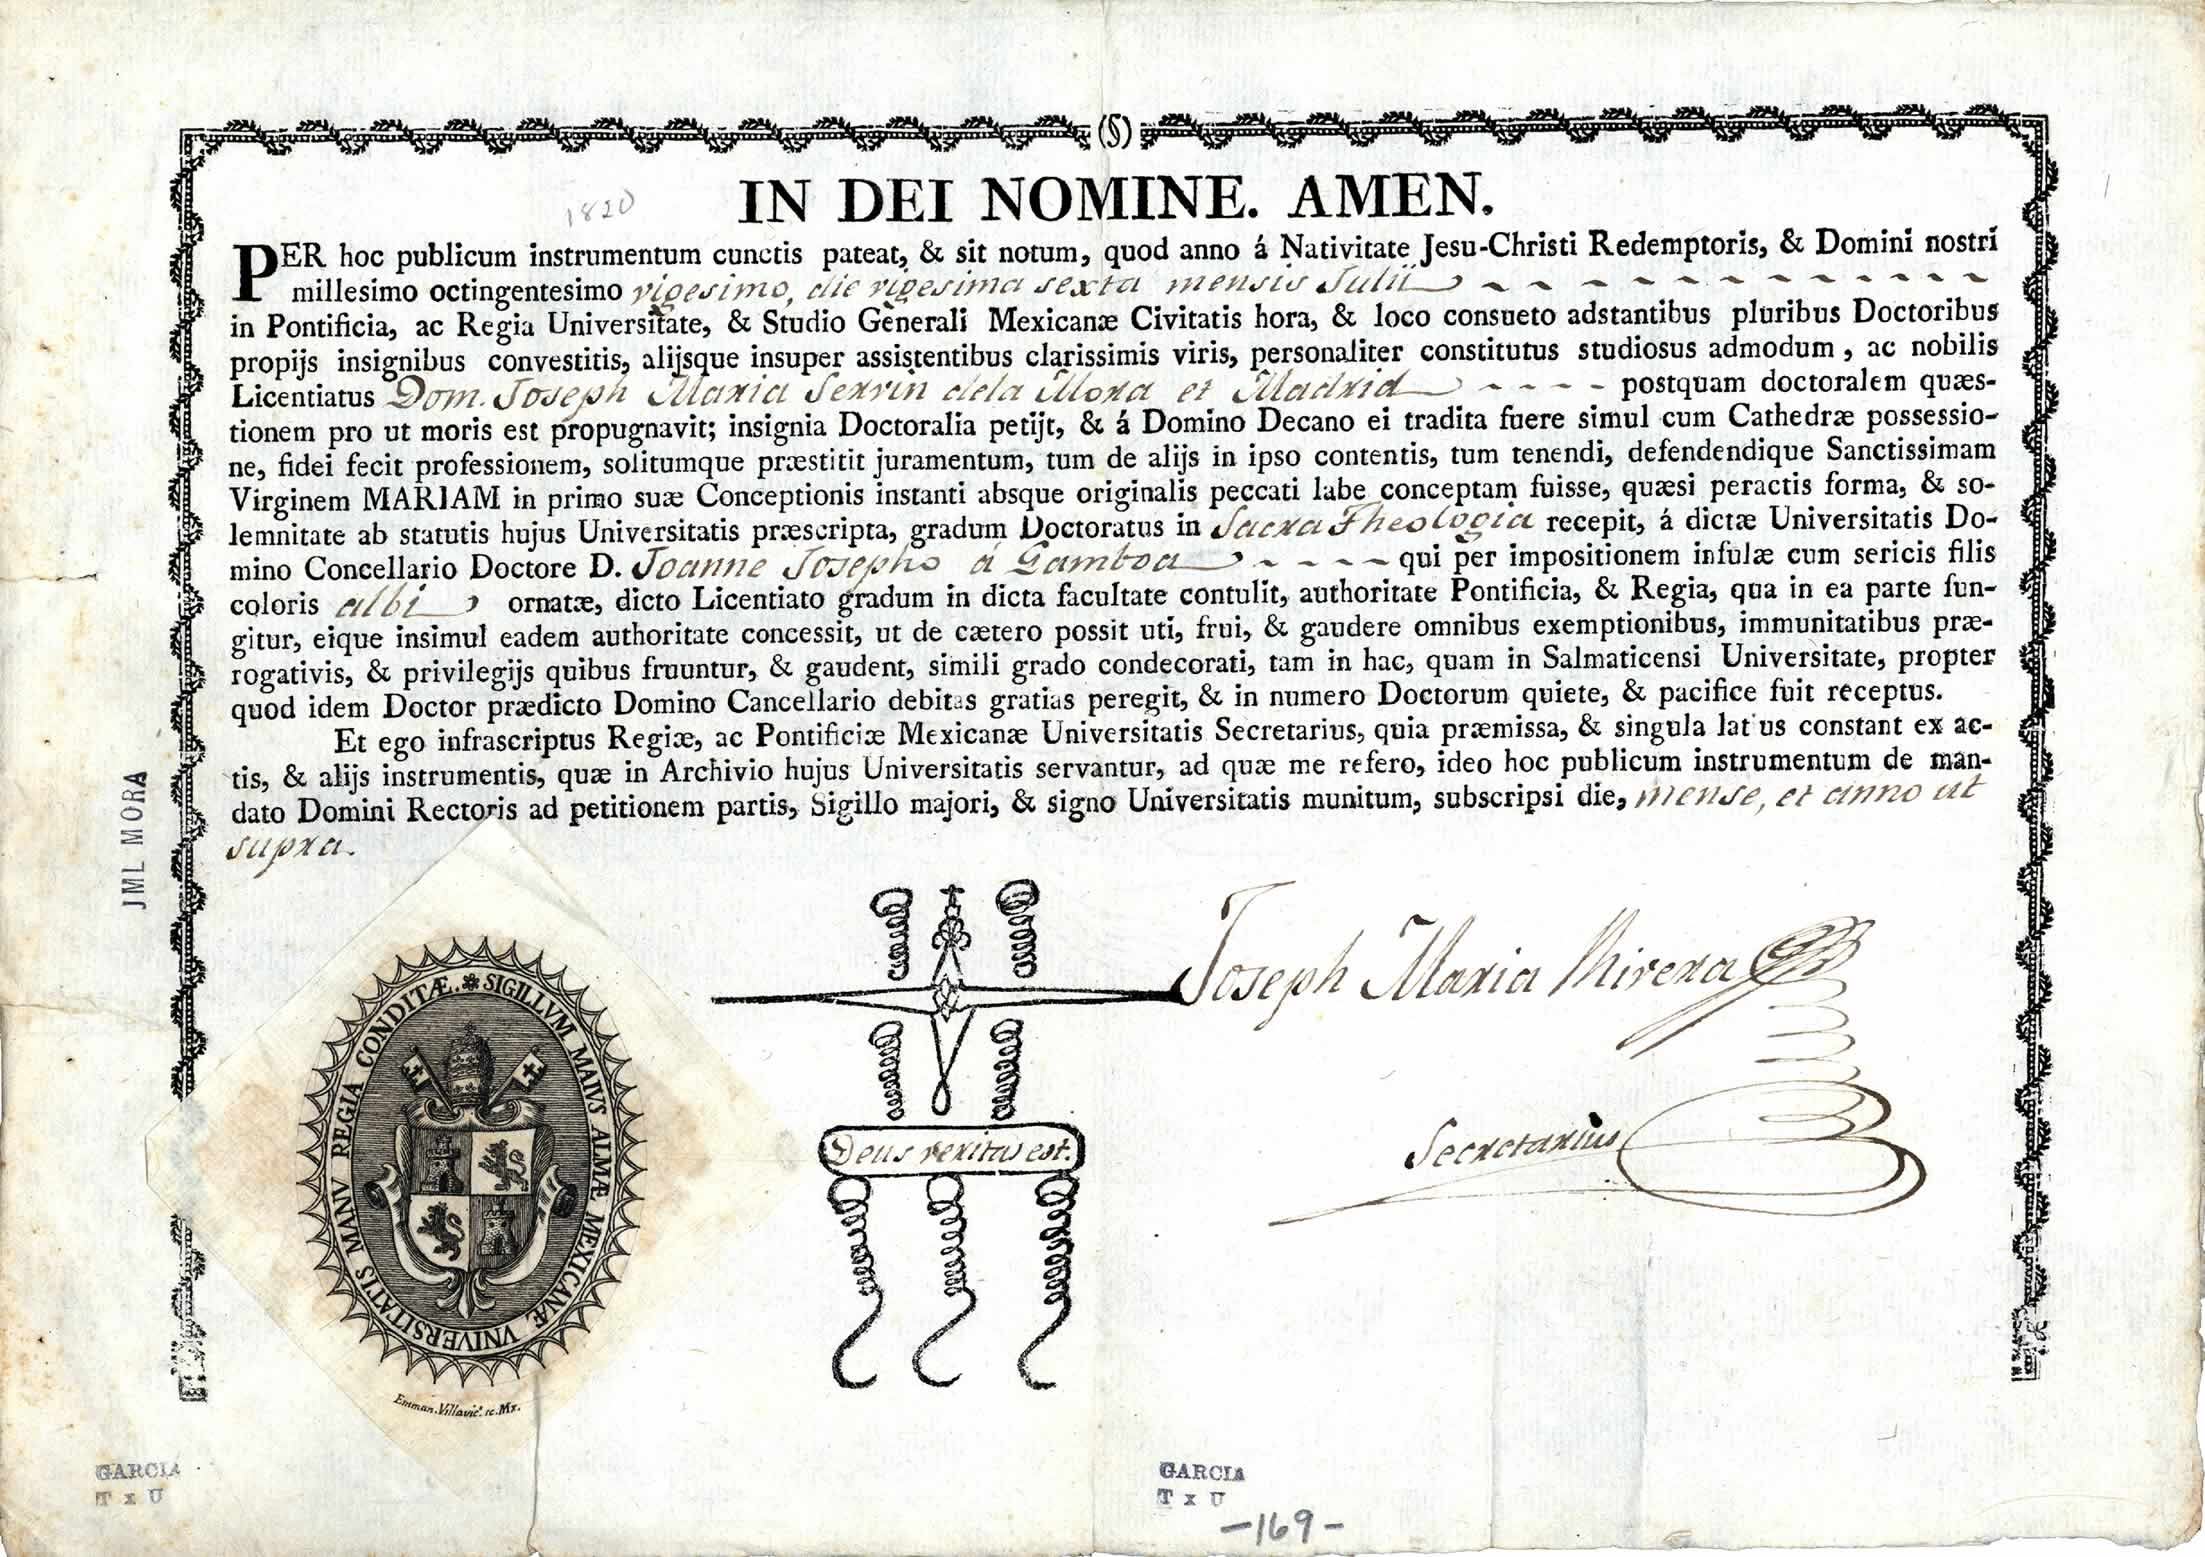 (§)
1820
IN DEI NOMINE. AMEN.
PER hoc publicum instrumentum cunctis pateat, & sit notum, quod anno á Nativitate Jesu-Christi Redemptoris, & Domini nostri
millesimo octingentesimo vigesimo, die vigesima sexta mensis Julii
in Pontificia, ac Regia Universitate, & Studio Generali Mexicanæ Civitatis hora, & loco consueto adstantibus pluribus Doctoribus
propijs insignibus convestitis, alijsque insuper assistentibus clarissimis viris, personaliter constitutus studiosus admodum, ac nobilis
Licentiatus Dom. Joseph Maria Servin dela Mora et Madrid postquam doctoralem quæs-
tionem pro ut moris est propugnavit; insignia Doctoralia petijt, & á Domino Decano ei tradita fuere simul cum Cathedræ possessio-
ne, fidei fecit professionem, solitumque præstitit juramentum, tum de alijs in ipso contentis, tum tenendi, defendendique Sanctissimam
Virginem MARIAM in primo suæ Conceptionis instanti absque originalis peccati labe conceptam fuisse, quæsi peractis forma, & so-
lemnitate ab statutis hujus Universitatis præscripta, gradum Doctoratus in Sacra Theologia recepit, á dictæ Universitatis Do-
mino Concellario Doctore D. Joanne Josepho á Gamboa qui per impositionem infulæ cum sericis filis
coloris albi ornatæ, dicto Licentiato gradum in dicta facultate contulit, authoritate Pontificia, & Regia, qua in ea parte fun-
gitur, eique insimul eadem authoritate concessit, ut de cætero possit uti, frui, & gaudere omnibus exemptionibus, immunitatibus præ-
rogativis, & privilegijs quibus fruuntur, & gaudent, simili grado condecorati, tam in hac, quam in Salmaticensi Universitate, propter
quod idem Doctor prædicto Domino Cancellario debitas gratias peregit, & in numero Doctorum quiete, & pacifice fuit receptus.
Et ego infrascriptus Regiæ, ac Pontificiæ Mexicanæ Universitatis Secretarius, quia præmissa, & singula latius constant ex ac-
tis, & alijs instrumentis, quæ in Archivio hujus Universitatis servantur, ad quæ me refero, ideo hoc publicum instrumentum de man-
dato Domini Rectoris ad petitionem partis, Sigillo majori, & signo Universitatis munitum, subscripsi die, mense, et anno ut
supra.
JML MORA
SIGILLVM MAIVS ALMÆ MEXICANÆ VNIVERSITATIS MANV REGIA CONDITÆ.
Emman. Villavic.º sc. Mx.
Deus veritas est.
Joseph Maria Rivera
Secretarius
GARCIA
T x U
GARCIA
T x U
-169-